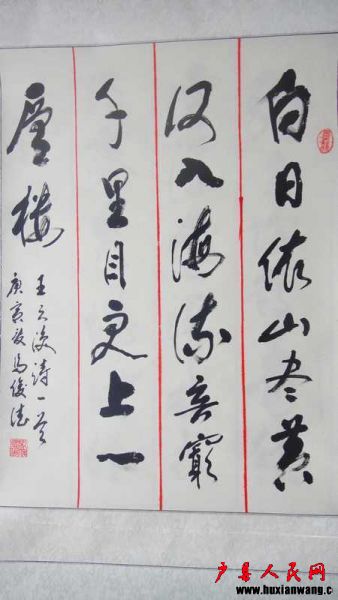 白日依山尽黄
河入海流欲窮
千里目更上一
層樓
王之渙詩一首
庚寅馬俊德
户县人民网
www.huxianwang.c